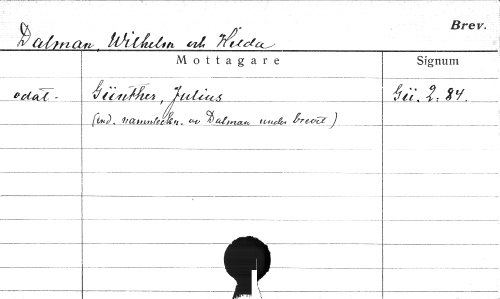 Brev.
Dalman, Wilhelm och Hilda
Mottagare Signum
odat. Günther, Julius Gü. 2:84.
(end. namnteckn. av Dalman under brevet)